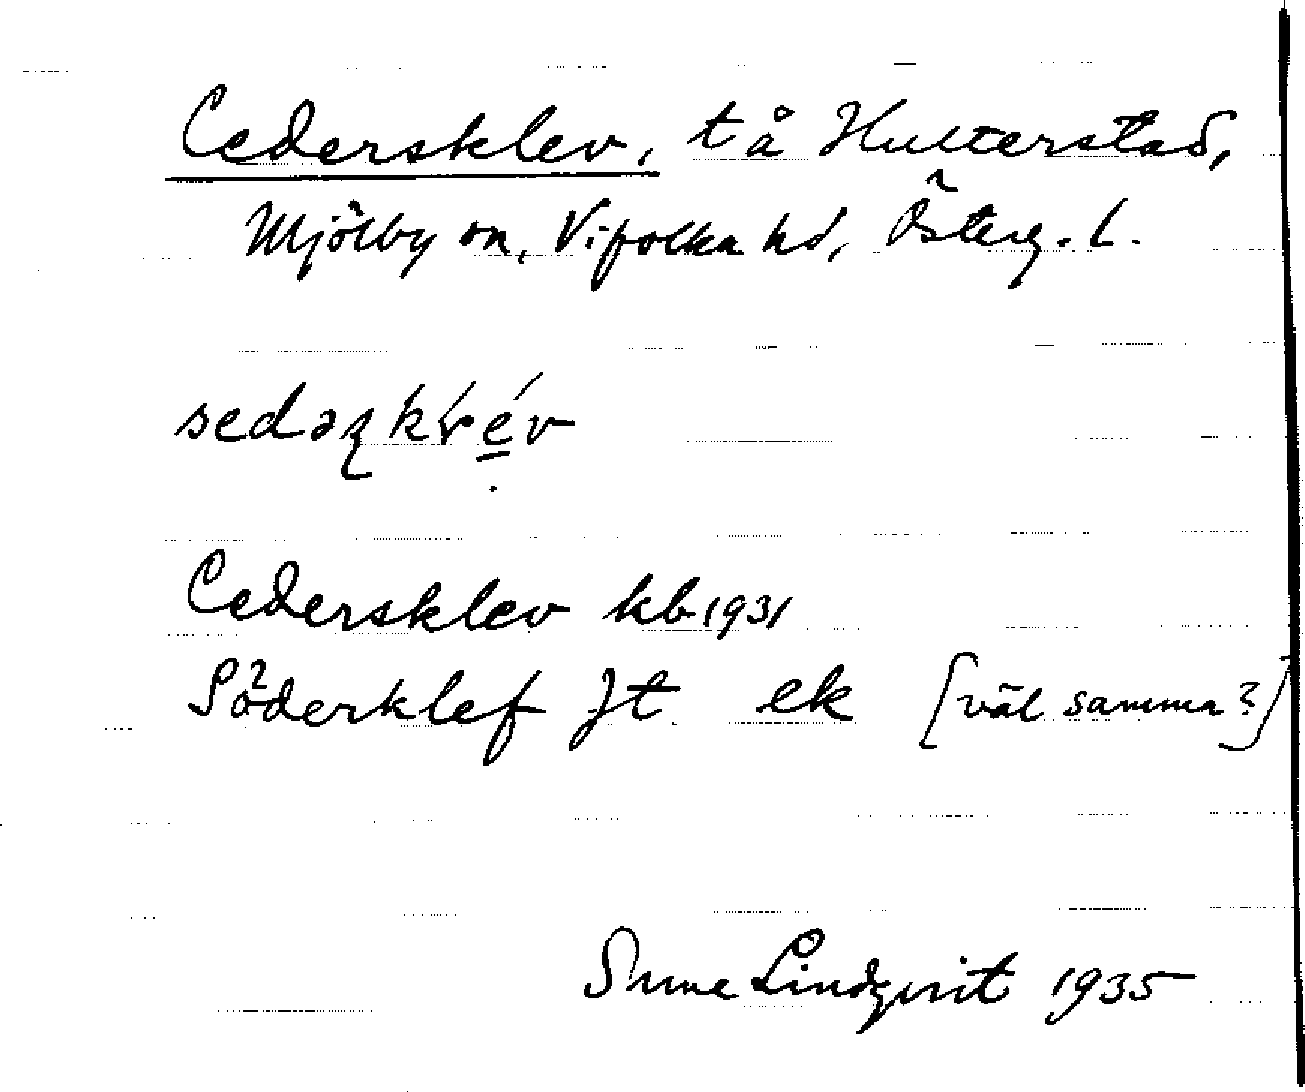 Cedersklev, t å Hulterstad,
Mjölby sn, Vifolka hd, Österg. l.
Cedersklev kb 1931
Söderklef Jt ek [väl samma?]
Sune Lindqvist 1935